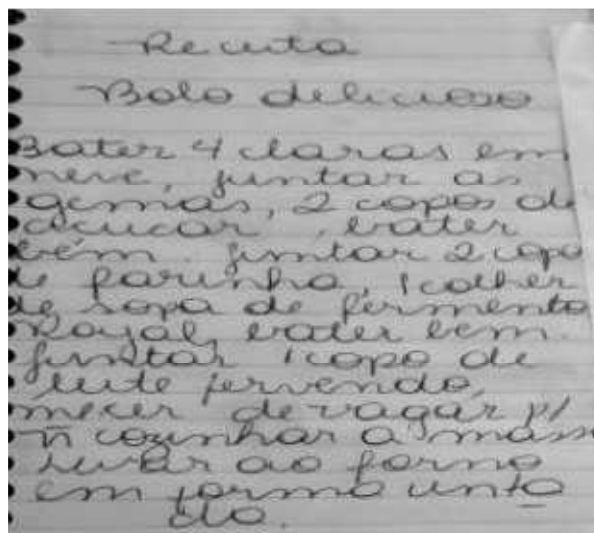 Receita
Bolo delicioso
Bater 4 claras em
neve, juntar as
gemas, 2 copos de
açucar, bater
bém. juntar 2 copo
de farinha, 1 colher
de sopa de fermento
Royal, bater bem.
Juntar 1 copo de
leite fervendo,
mecer devagar p/
ñ cozinhar a mass
Levar ao forno
em forma unta
da.